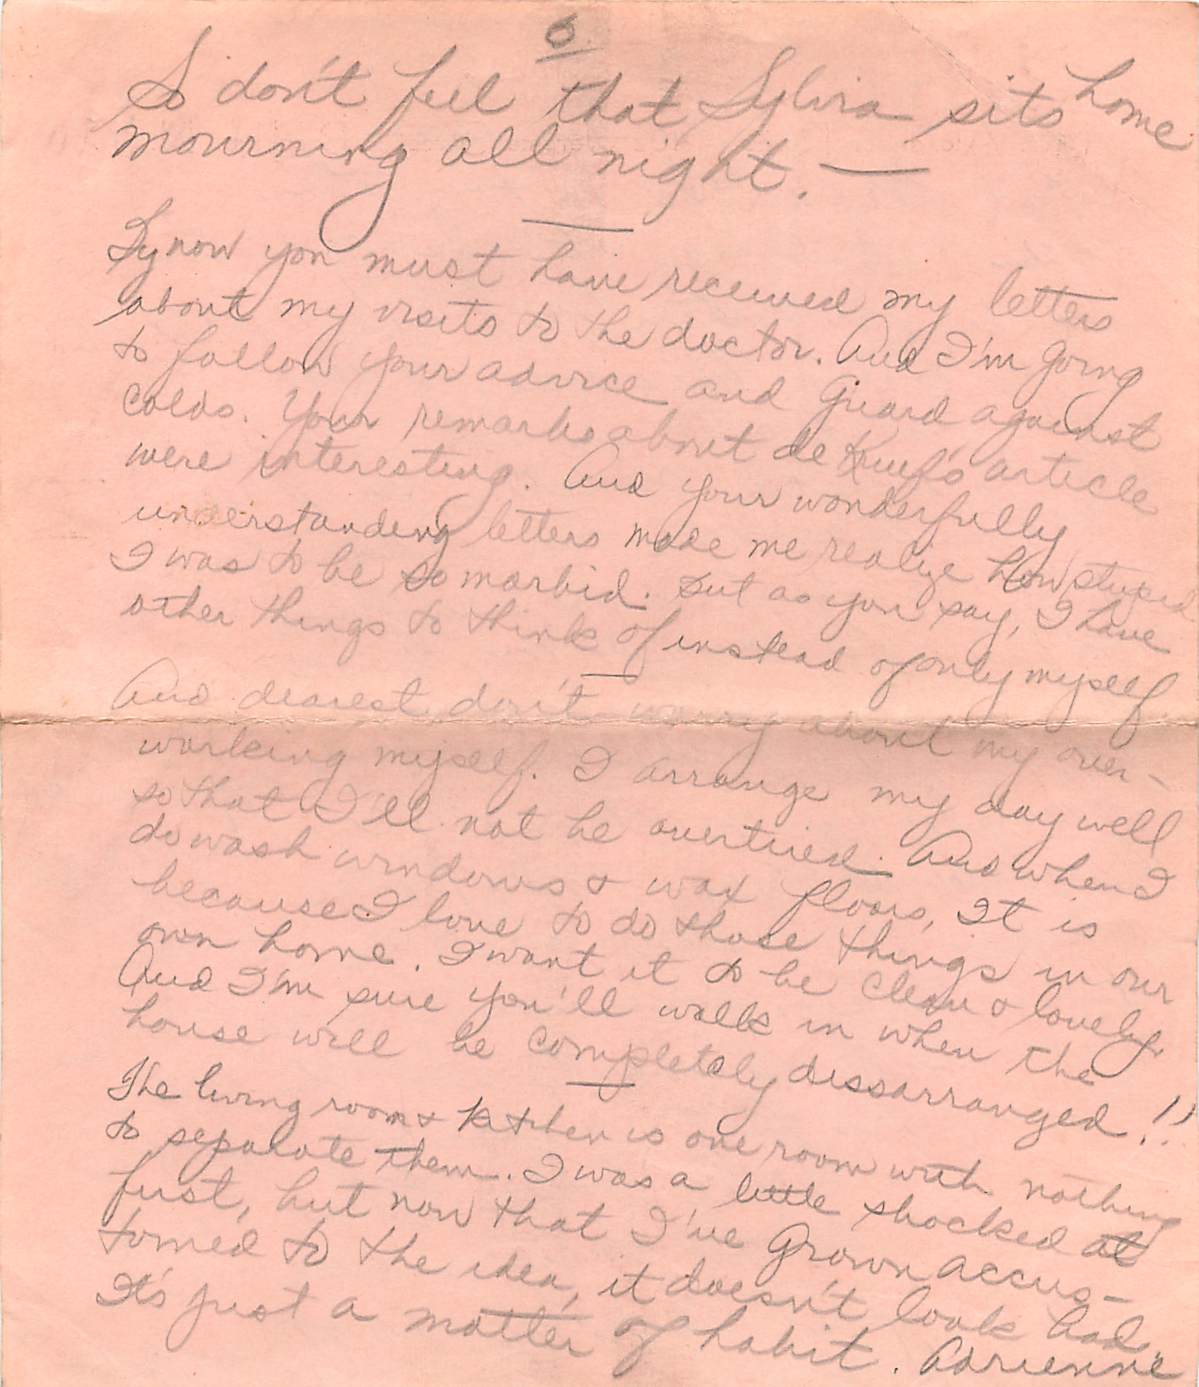 6
So don't feel that Sylvia sits home
mourning all night. —
By now you must have received my letters
about my visits to the doctor. And I'm going
to follow your advice and guard against
colds. Your remarks about de Kruif's article
were interesting. And your wonderfully
understanding letters made me realize how stupid
I was to be so morbid. But as you say, I have
other things to think of instead of only myself.
And dearest don't worry about my over-
working myself. I arrange my day well
so that I'll not be overtired. And when I
do wash windows & wax floors, It is
because I love to do those things in our
own home. I want it to be clean & lovely.
And I'm sure you'll walk in when the
house will be completely dissarranged!!
The living room & kitchen is one room with nothing
to separate them. I was a little shocked at
first, but now that I've grown accus-
tomed to the idea, it doesn't look bad.
It's just a matter of habit. Adrienne